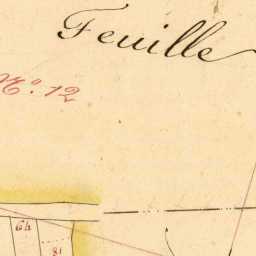 Feuille
N.º 12
64
18